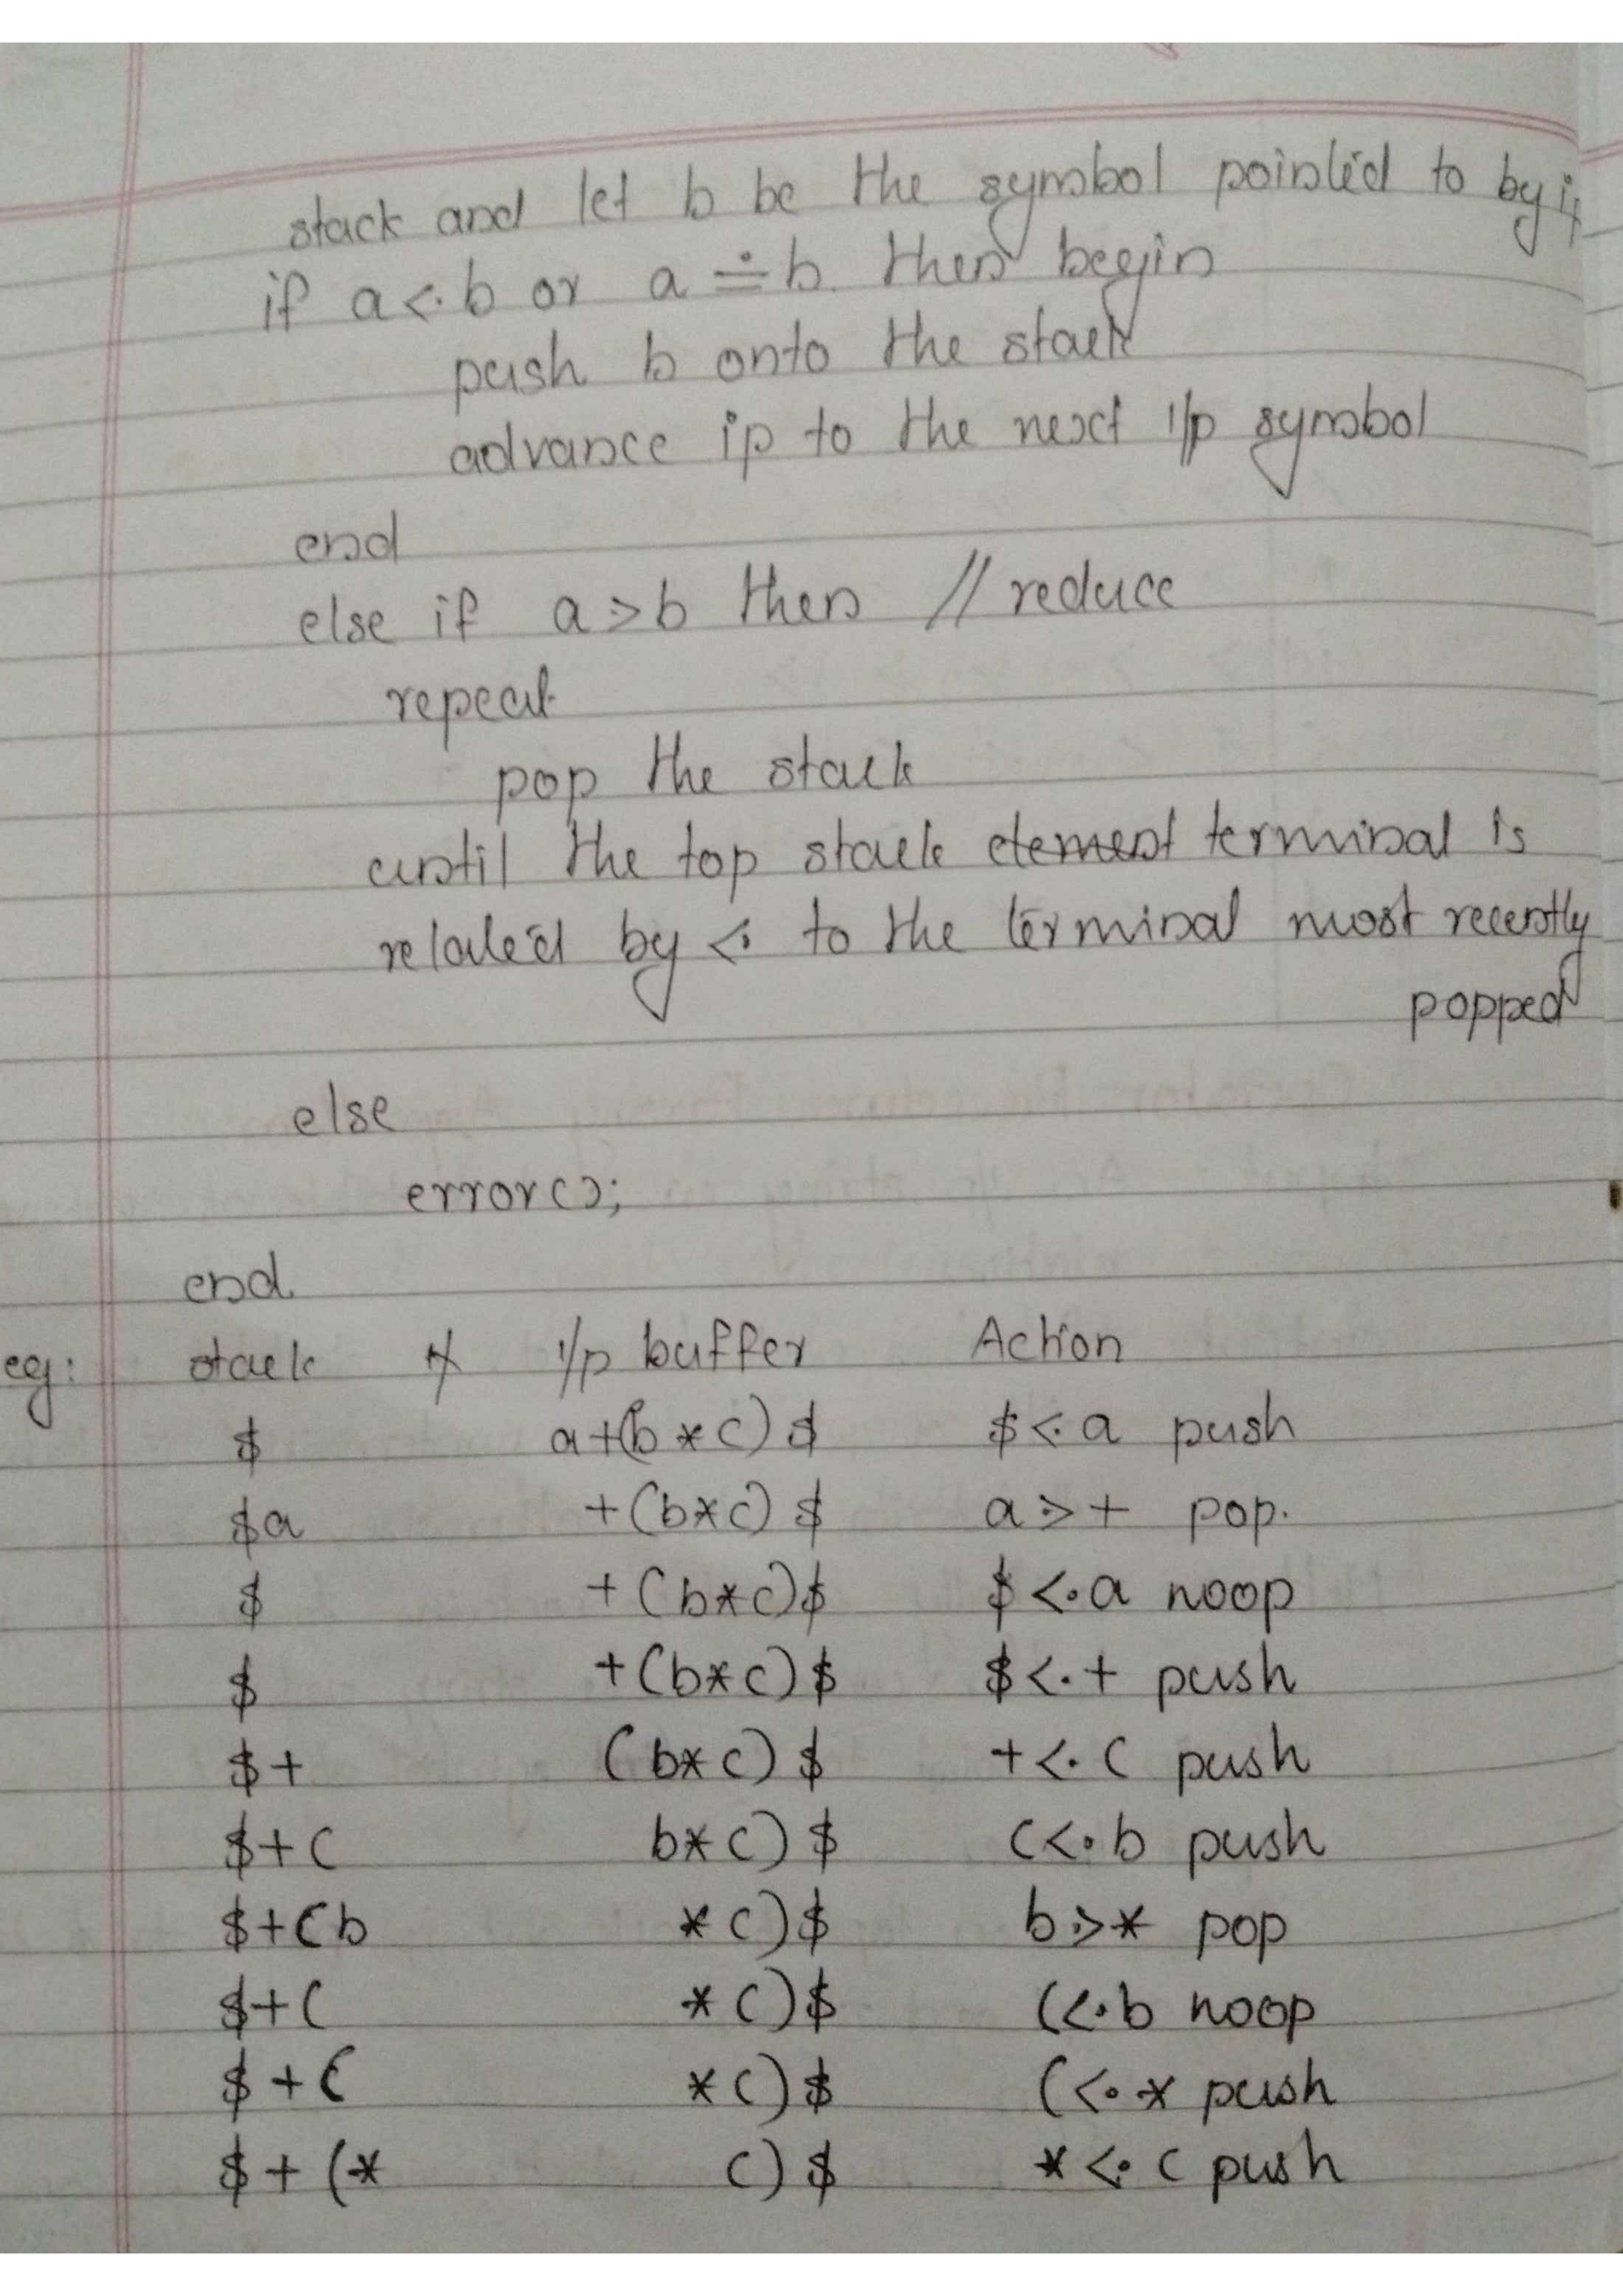 stack and let b be the symbol pointed to by ip
if a <· b or a ≐ b then begin
push b onto the stack
advance ip to the next i/p symbol
end
else if a > b then // reduce
repeat
pop the stack
until the top stack element terminal is
related by <· to the terminal most recently
popped
else
error();
end.
eg: stack i/p buffer Action
$ a+(b*c)$ $<·a push
$a +(b*c)$ a·>+ pop.
$ +(b*c)$ $<·a noop
$ +(b*c)$ $<·+ push
$+ (b*c)$ +<·( push
$+( b*c)$ (<·b push
$+(b *c)$ b·>* pop
$+( *c)$ (<·b noop
$+( *c)$ (<·* push
$+(* c)$ *<·c push